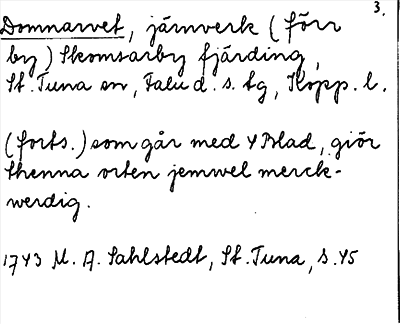 3.
Domnarvet, järnverk (förr
by) Skomsarby fjärding,
St. Tuna sn, Falu d. s. tg, Kopp. l.
(forts.) som går med 4 Blad, giör
thenna orten jemwel merck-
werdig.
1743 M. A. Sahlstedt, St. Tuna, s. 45